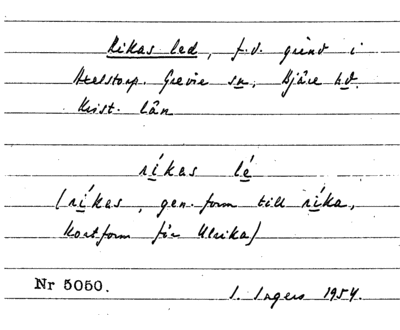 Rikas led, f.d. grind i
Atelstorp. Grevie sn, Bjäre hd.
Krist. län
ríkas lé
(ríkas, gen. form till ríka,
kortform för Ulrika)
Nr 5050.
I. Ingers 1954.